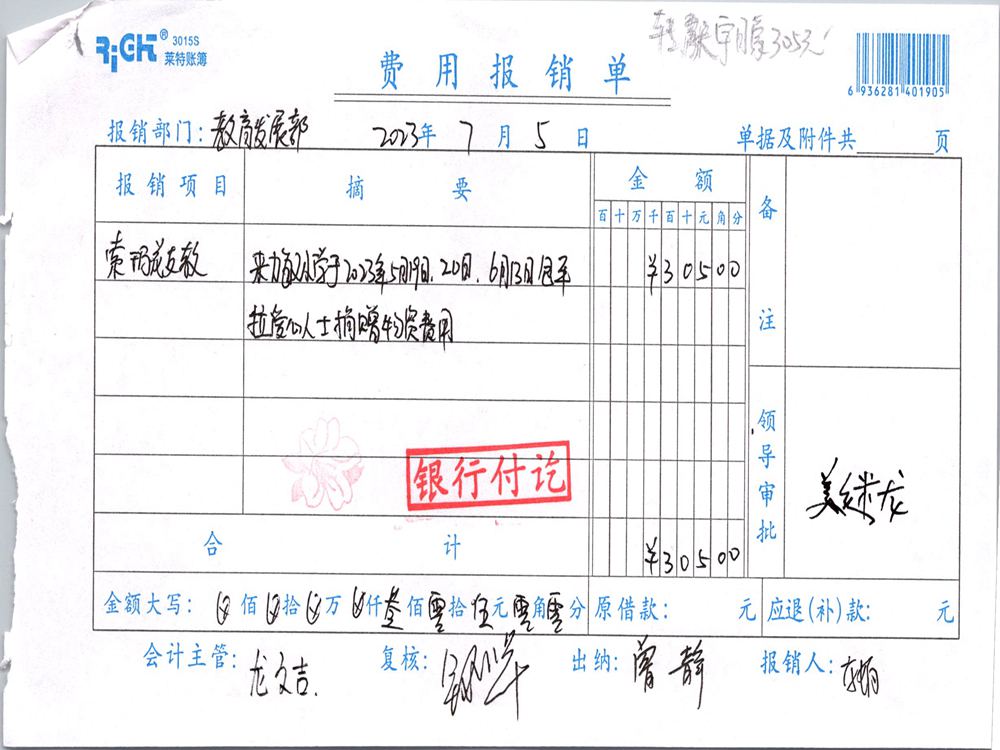 RiGHT® 3015S
莱特账簿
305元
费用报销单
6 936281 401905
报销部门：教育发展部 2023年 7月 5日 单据及附件共 页
报销项目 摘要 金额 备注
百十万千百十元角分
索玛花支教 来力敏小学于2023年5月19日、20日、6月13日包车 ¥30500
拉爱心人士捐赠物资费用
领导审批
银行付讫
合计 ¥30500
金额大写： 佰 拾 万 仟叁佰零拾伍元零角零分 原借款： 元 应退(补)款： 元
会计主管：龙文吉 复核： 出纳：曾静 报销人：